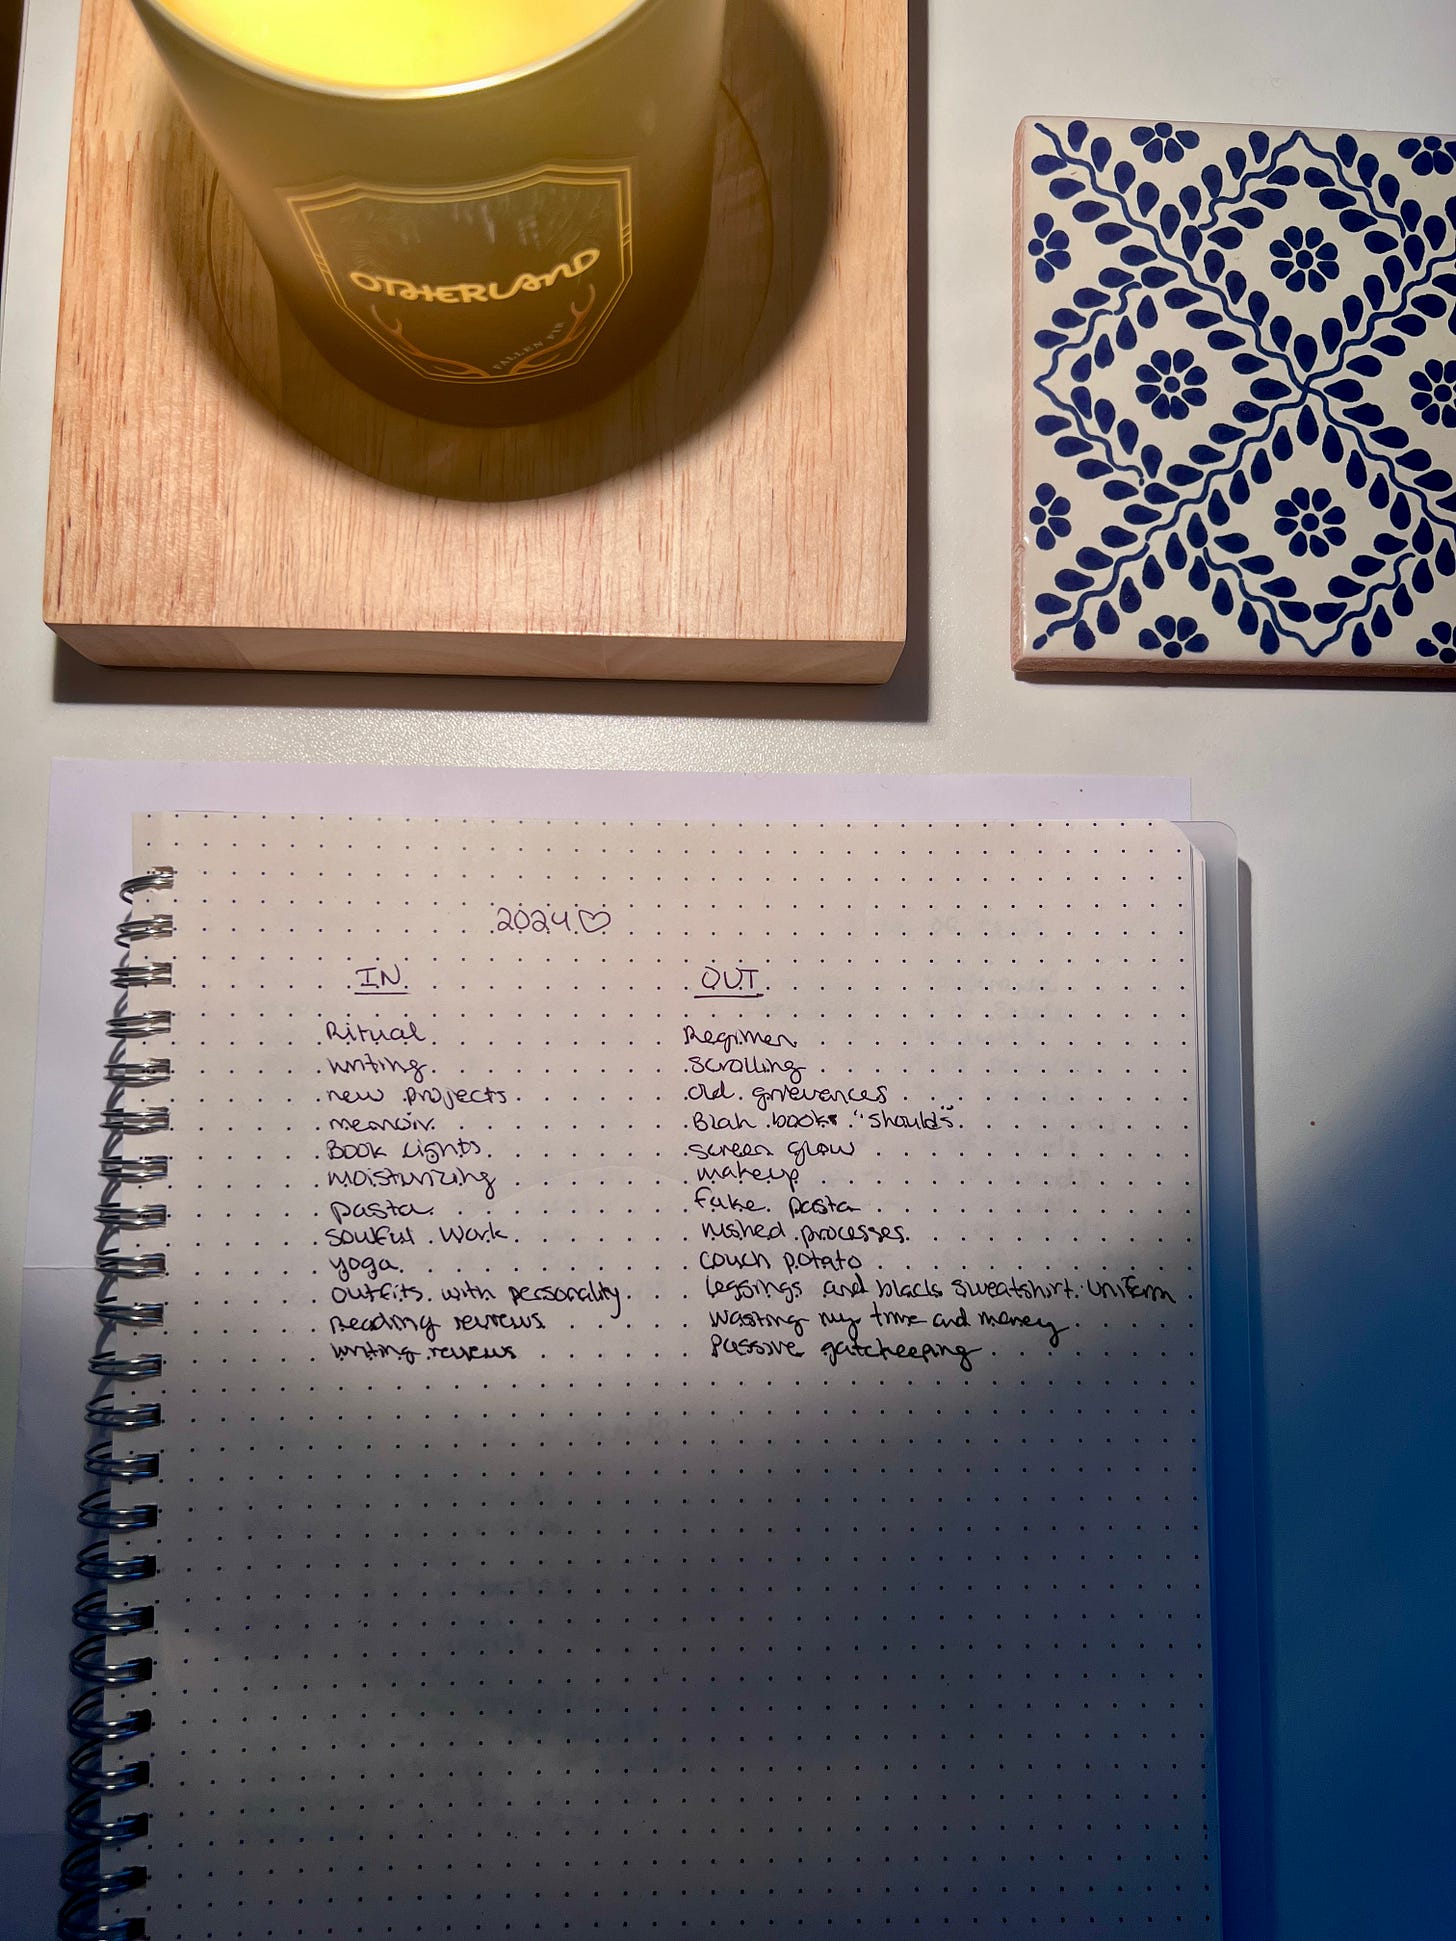 OTHERLAND
FALLEN FIR
2024♡
IN OUT
Ritual Regimen
writing scrolling
new projects old grievances
memoir Blah books "shoulds"
Book Lights screen glow
moisturizing makeup
pasta fake pasta
soulful work rushed processes
yoga couch potato
outfits with personality leggings and black sweatshirt uniform
Reading reviews wasting my time and money
writing reviews Passive gatekeeping